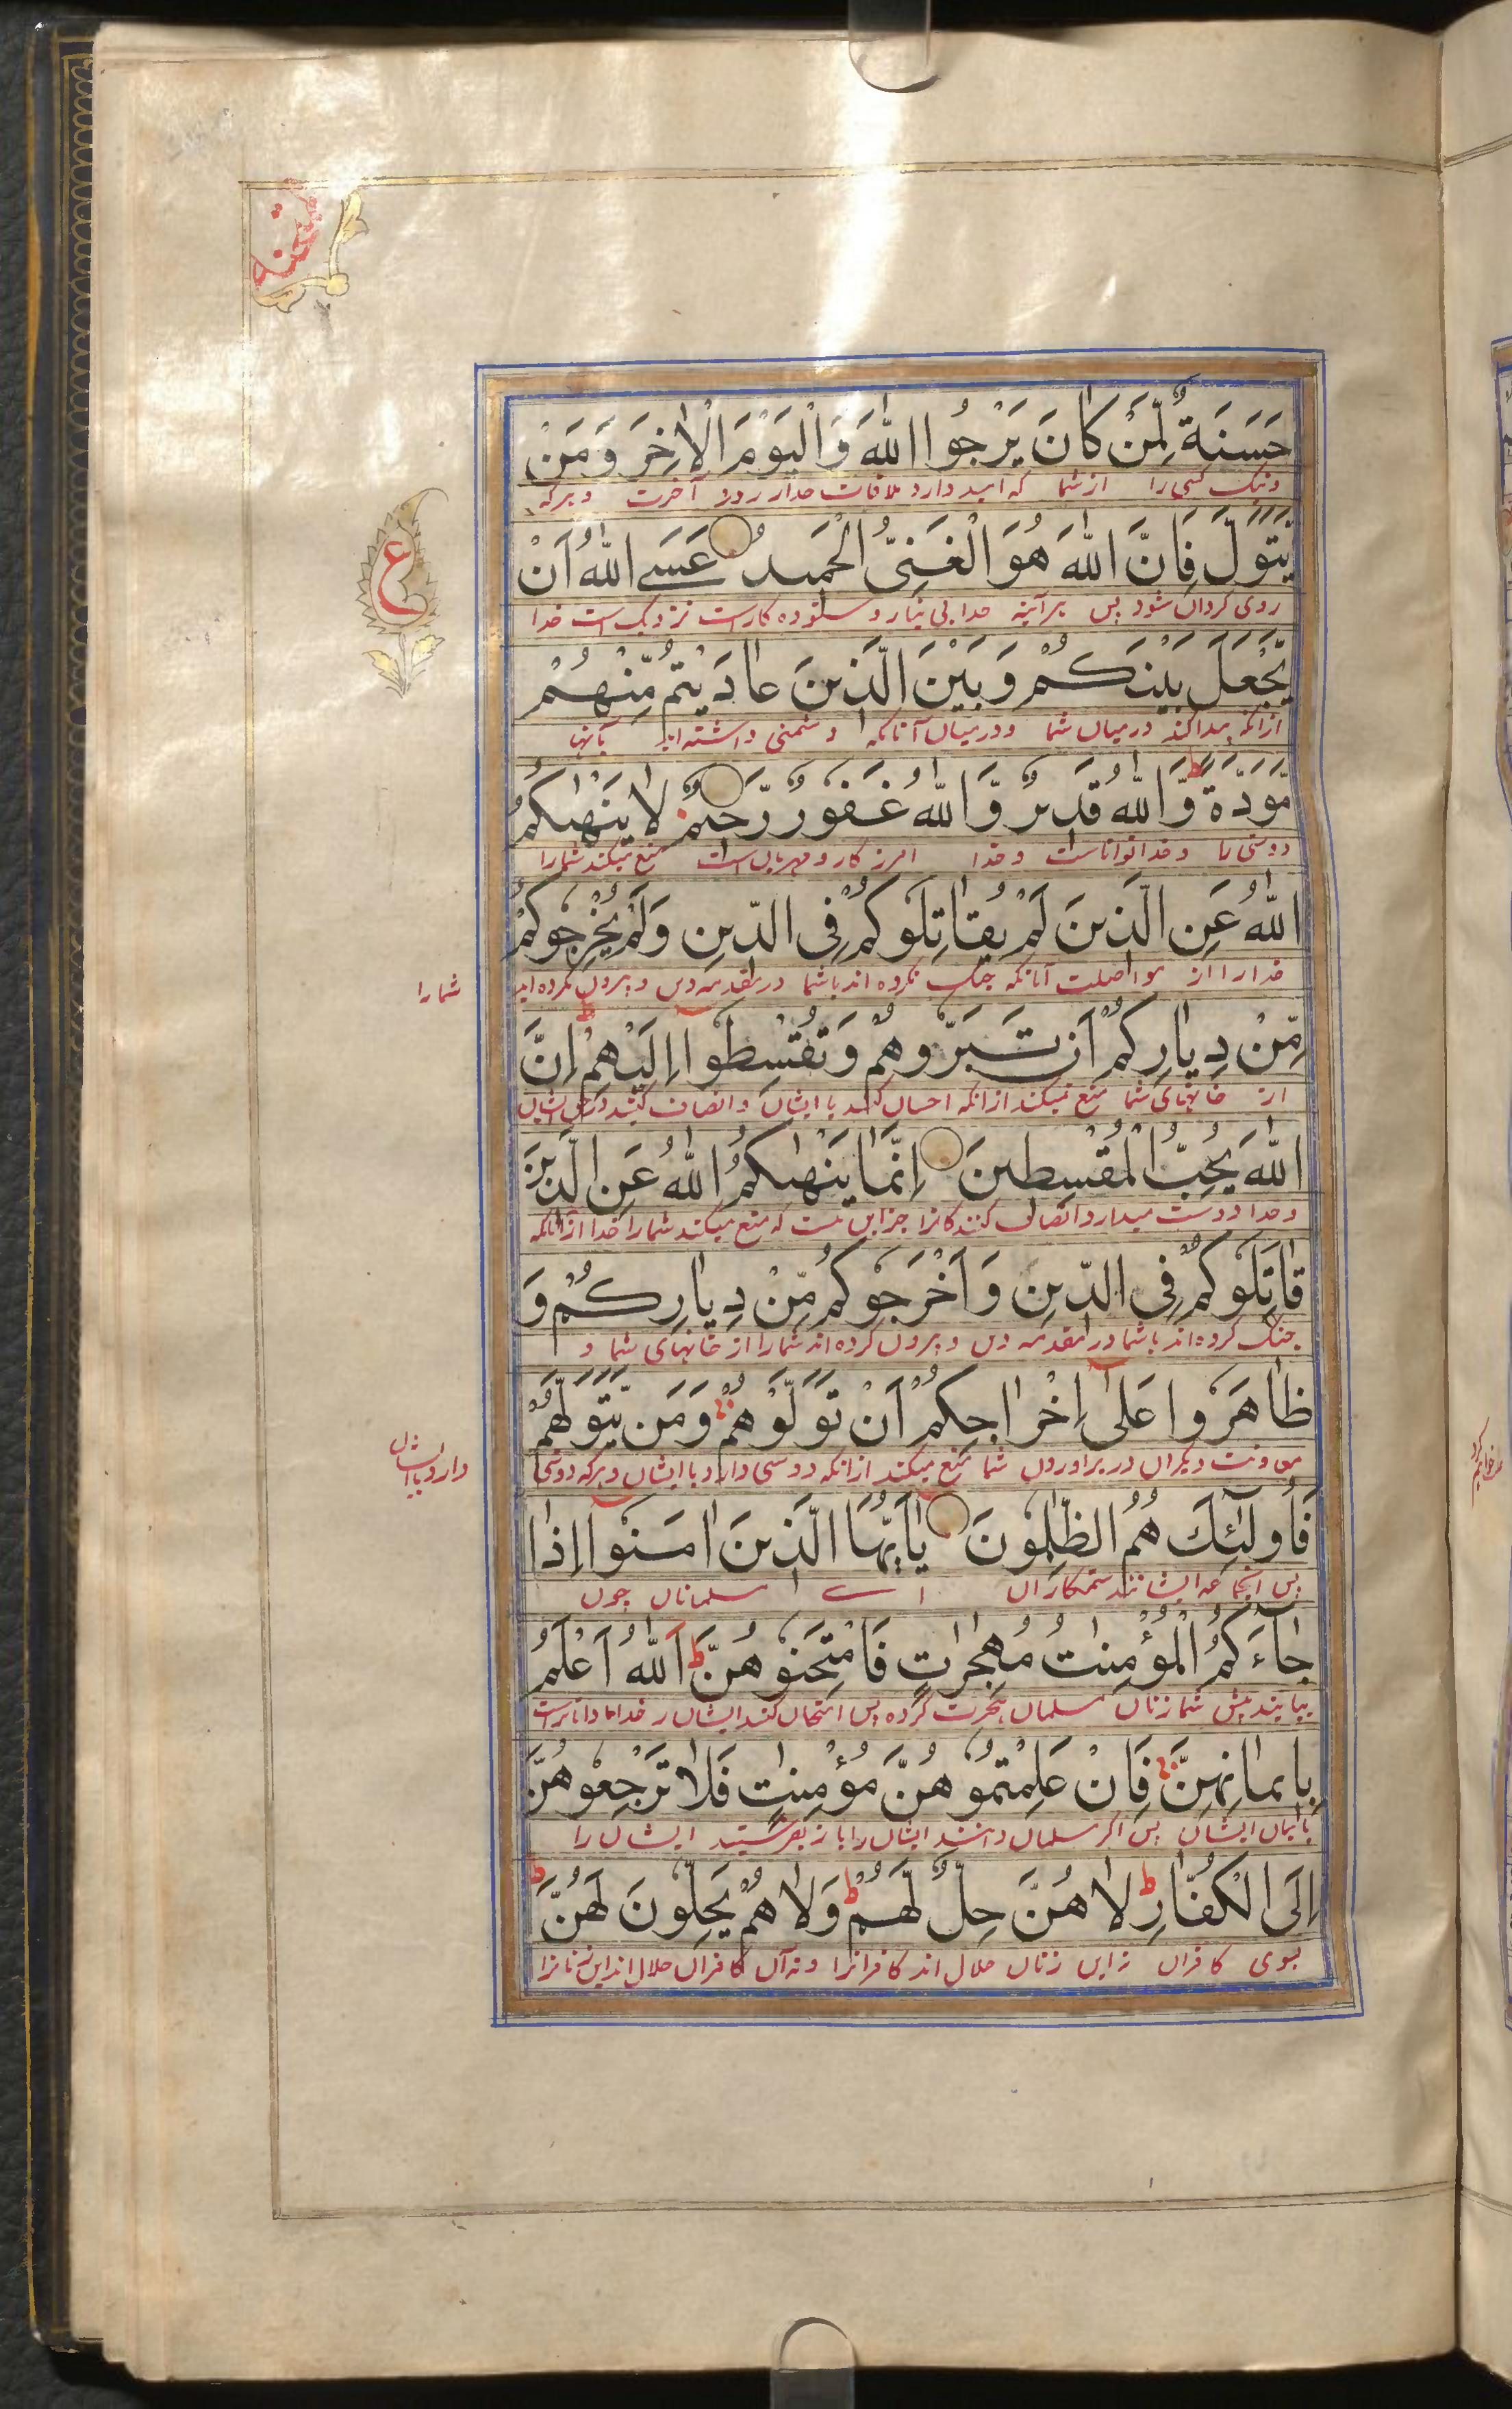 ممتحنه
حَسَنَةٌ لِّمَنْ كَانَ يَرْجُوا اللّٰهَ وَالْيَوْمَ الْاٰخِرَ وَمَنْ
نیک کسی را از شما که امید دارد ملاقات خدا و روز آخرت و هرکه
يَّتَوَلَّ فَاِنَّ اللّٰهَ هُوَ الْغَنِىُّ الْحَمِيدُ عَسَے اللّٰهُ اَنْ
ع
روی گردان شود پس هرآینه خدا بی نیاز و ستوده کار است نزدیک است خدا
يَّجْعَلَ بَيْنَكُمْ وَبَيْنَ الَّذِينَ عَادَيْتُمْ مِّنْهُمْ
از انکه پیدا کند درمیان شما ودرمیان آنانکه دشمنی داشته اید بآنها
مَّوَدَّةً ط وَّاللّٰهُ قَدِيرٌ وَّاللّٰهُ غَفُورٌ رَّحِيمٌ لَا يَنْهٰىكُمُ
دوستی را و خدا تواناست و خدا امرزکار و مهربان است منع نمیکند شما را
اللّٰهُ عَنِ الَّذِينَ لَمْ يُقَاتِلُوكُمْ فِى الدِّينِ وَلَمْ يُخْرِجُوكُمْ
خدا را از مواصلت آنانکه جنک نکرده اند باشما در مقدمه دین و بیرون نکرده اند
شما را
مِّنْ دِيَارِكُمْ اَنْ تَبَرُّوهُمْ وَتُقْسِطُوا اِلَيْهِمْ ط اِنَّ
از خانهای شما منع نمیکند از انکه احسان کنید با ایشان و انصاف کنید در حق ایشان
اللّٰهَ يُحِبُّ الْمُقْسِطِينَ اِنَّمَا يَنْهٰىكُمُ اللّٰهُ عَنِ الَّذِينَ
و خدا دوست میدارد انصاف کنندکانرا جز این نیست که منع میکند شما را خدا از انانکه
قَاتَلُوكُمْ فِى الدِّينِ وَاَخْرَجُوكُمْ مِّنْ دِيَارِكُمْ وَ
جنک کرده اند باشما در مقدمه دین و بیرون کرده اند شما را از خانهای شما و
ظَاهَرُوا عَلٰى اِخْرَاجِكُمْ اَنْ تَوَلَّوْهُمْ وَمَنْ يَّتَوَلَّهُمْ
معاونت دیگران در براوردن شما منع میکند از انکه دوستی دارید با ایشان و هرکه دوستی
دارد با ایشان
فَاُولٰٓئِكَ هُمُ الظّٰلِمُونَ يٰاَيُّهَا الَّذِينَ اٰمَنُوا اِذَا
پس انجماعه ایشانند ستمکاران اے مسلمانان چون
جَآءَكُمُ الْمُؤْمِنٰتُ مُهٰجِرٰتٍ فَامْتَحِنُوهُنَّ ط اَللّٰهُ اَعْلَمُ
بیایند پیش شما زنان مسلمان هجرت کرده پس امتحان کنید ایشان را خدا داناتر است
بِاِيمَانِهِنَّ فَاِنْ عَلِمْتُمُوهُنَّ مُؤْمِنٰتٍ فَلَا تَرْجِعُوهُنَّ
بایمان ایشان پس اکر مسلمان دانید ایشان را باز نفرستید ایشان را
اِلَى الْكُفَّارِ ط لَا هُنَّ حِلٌّ لَّهُمْ ط وَلَا هُمْ يَحِلُّونَ لَهُنَّ ط
بسوی کافران نه این زنان حلال اند کافرانرا و نه آن کافران حلال اند این زنانرا